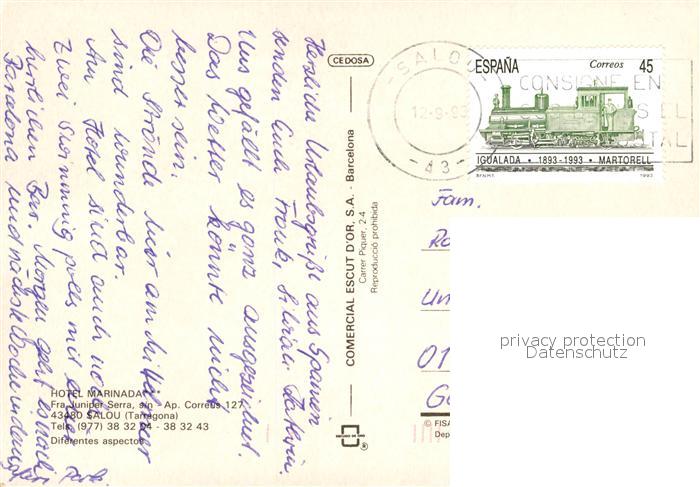 Herzliche Urlaubsgrüße aus Spanien
senden Euch Frank, Silvia
Uns gefällt es ganz ausgezeichnet.
Das Wetter könnte nicht
besser sein.
Die Strände hier am Mittelmeer
sind wunderbar.
Am Hotel sind auch noch
zwei Swimming pools mit einer
herrlichen Bar. Morgen geht es nach
Barcelona und nächste Woche
HOTEL MARINADA
Fra. Juniper Serra, s/n - Ap. Correos 127
43480 SALOU (Tarragona)
Tels. (977) 38 32 04 - 38 32 43
Diferentes aspectos
CEDOSA
COMERCIAL ESCUT D'OR, S.A. - Barcelona
Carrer Piquer, 2-4
Reproducció prohibida
®
SALOU
12-9-93
-43-
CONSIGNE EN
ESPAÑA Correos 45
IGUALADA · 1893-1993 · MARTORELL
1993
Fam.
Ro
Um
01
G
© FISA
Dep
privacy protection
Datenschutz